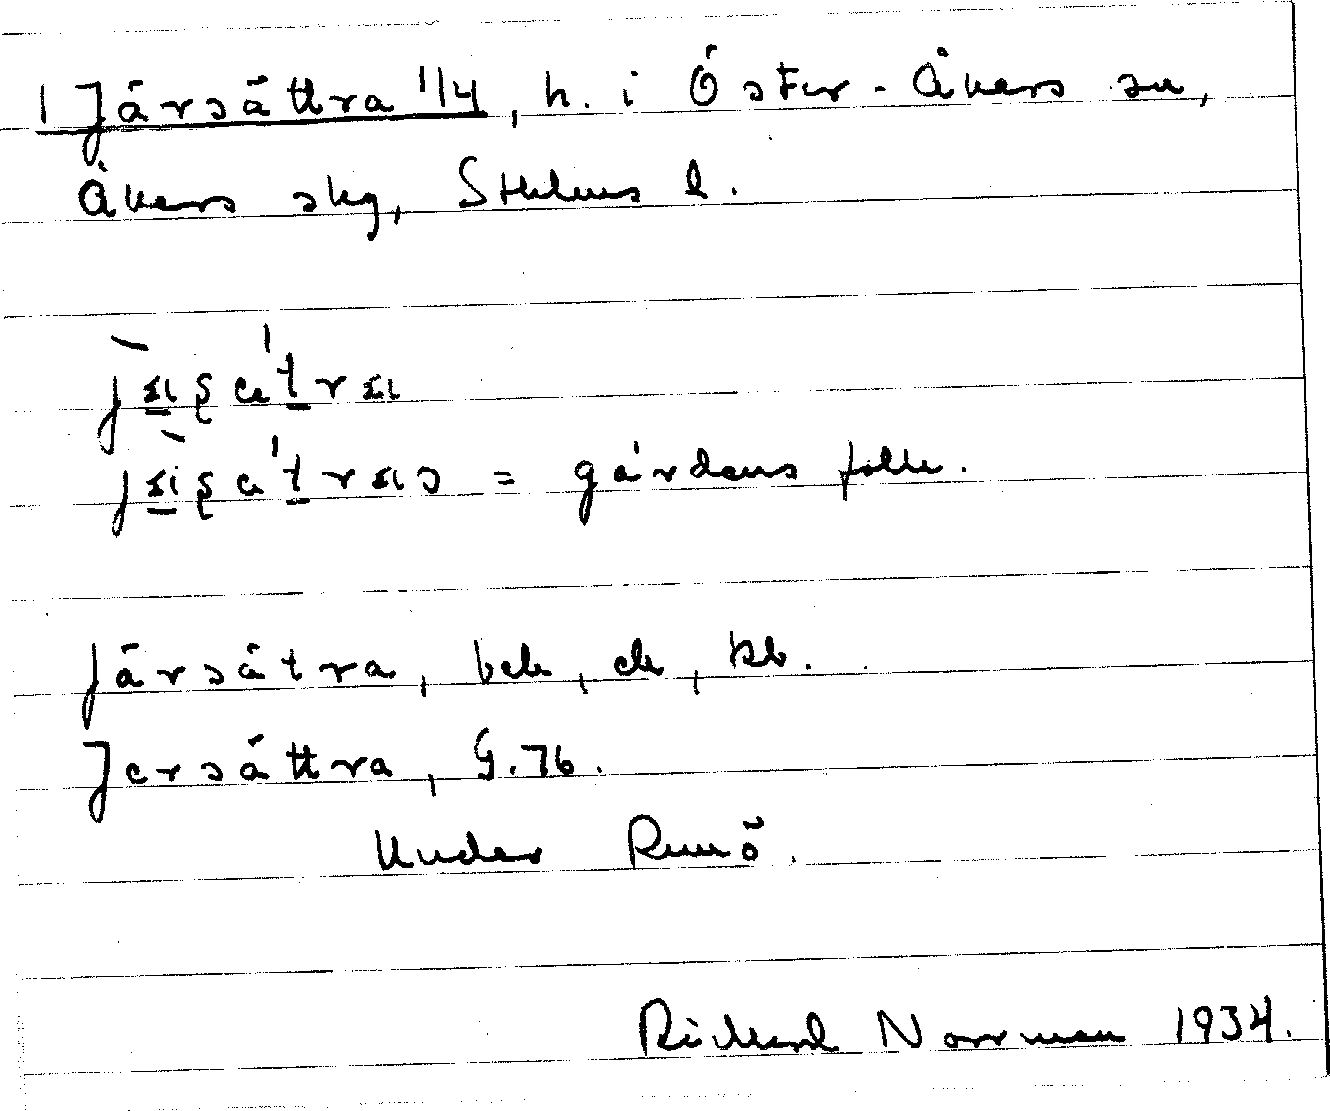 1 Järsättra 1/4, h. i Öster-Åkers sn,
Åkers skg, Sthlms l.
= gårdens folk.
Järsätra, bck, ck, kb.
Jersättra, G.76.
Under Rumö.
Rickard Norrman 1934.